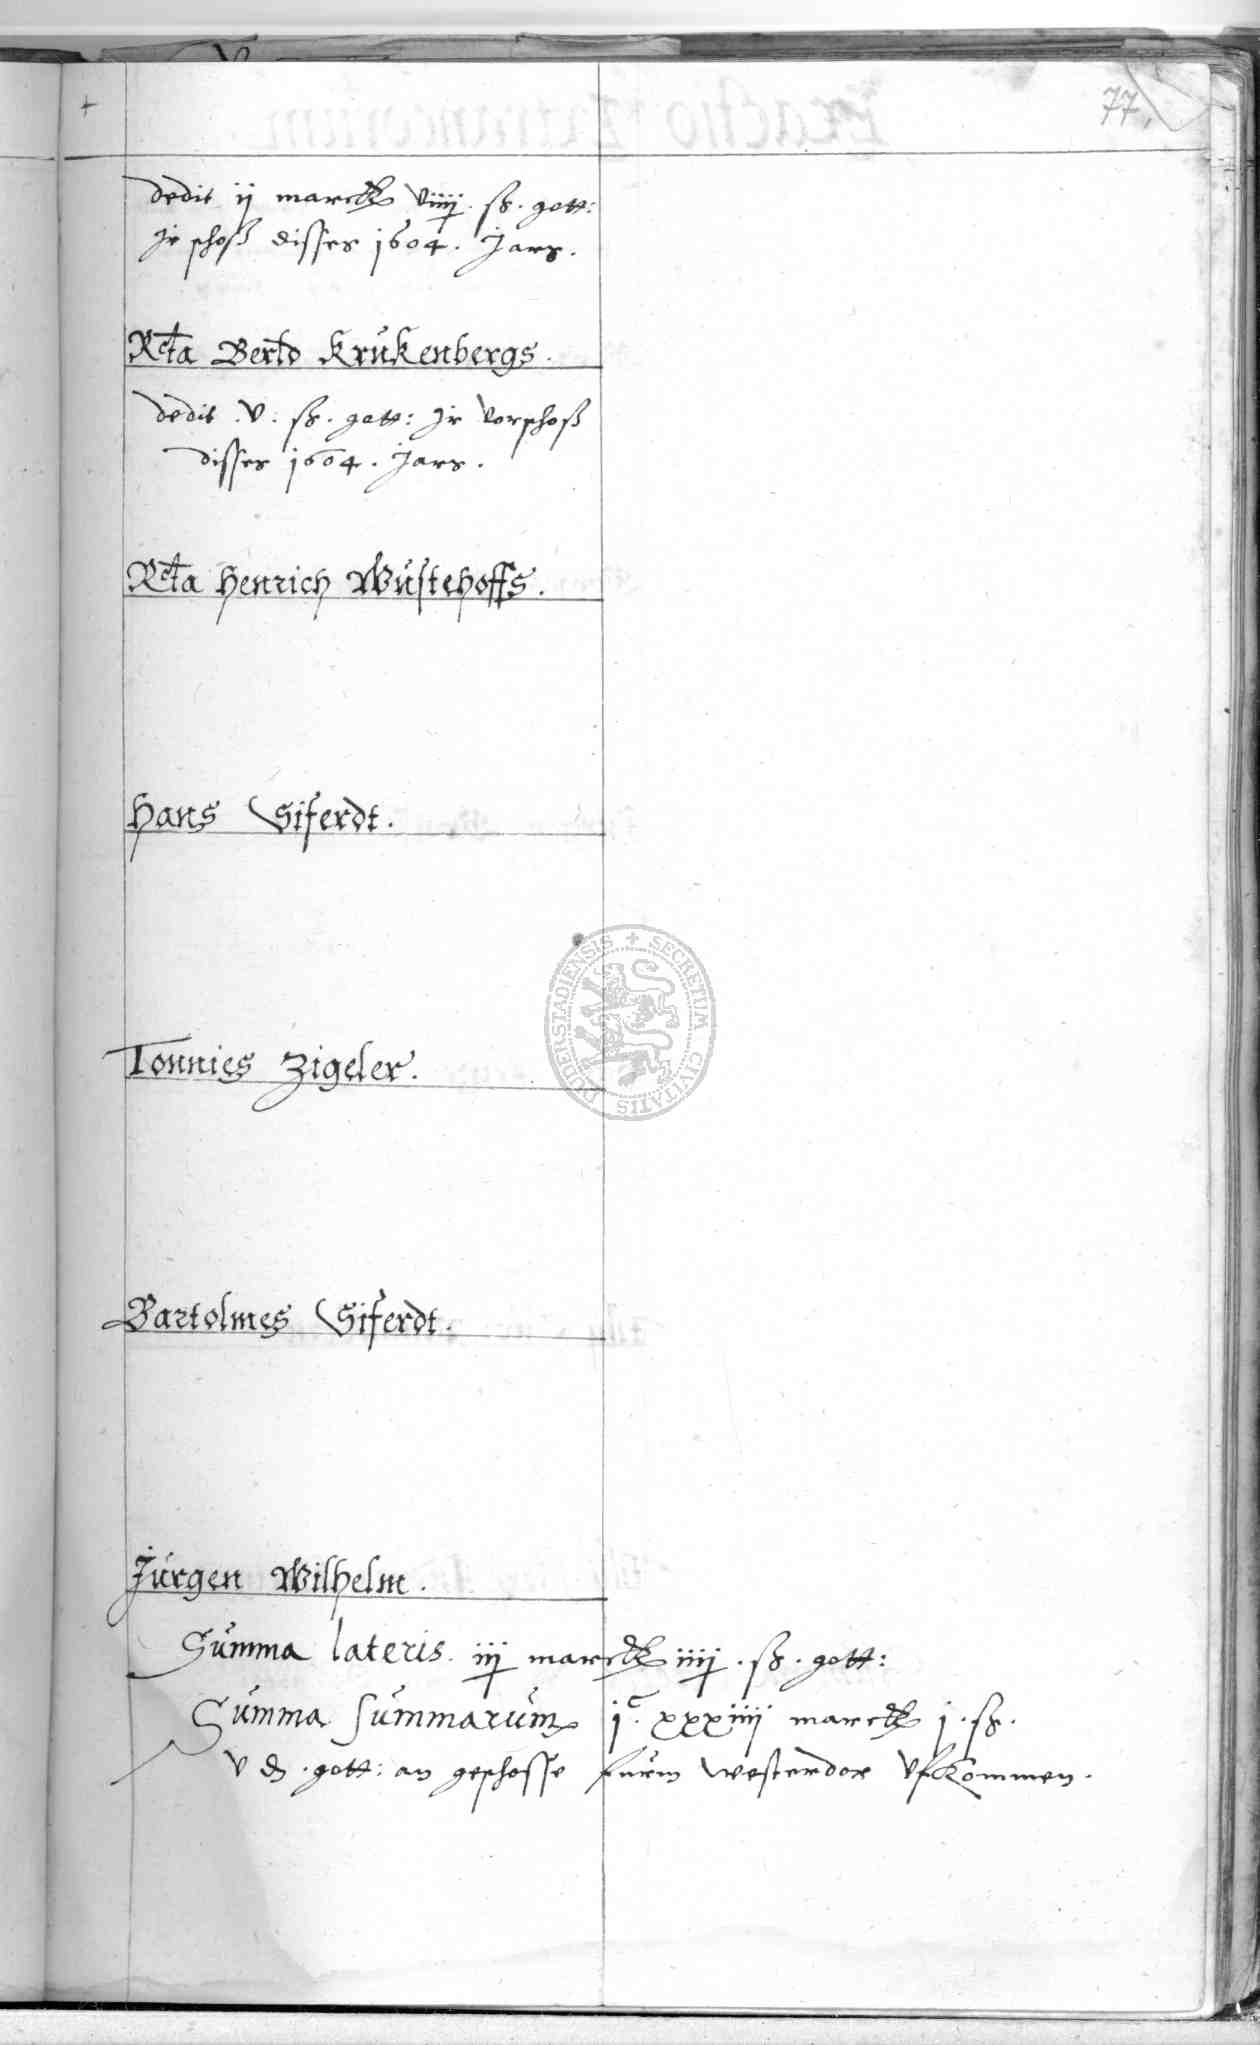 77.
dedit ij marck viiij. ß. gott:
Jr schoß disses 1604. Jars.
Rcta Bertd Krükenbergs.
dedit .v: ß. gott: Jr vorschoß
disses 1604. Jars.
Rcta Henrich Wüstehoffs.
Hans Siferdt.
Tonnies Zigeler.
DUDERSTADIENSIS + SECRETUM CIVITATIS
Bartolmes Siferdt.
Jürgen Wilhelm.
Summa lateris. iij marck iiij. ß. gott:
Summa summarum jc. xxxiiij marck j. ß.
v d. gott: an geschosse furm Westerdor ufkommen.